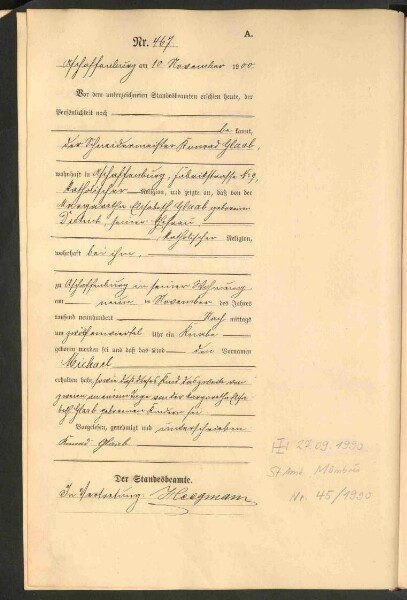 A.
Nr. 467
Aschaffenburg am 10 November 1900.
Vor dem unterzeichneten Standesbeamten erschien heute, der
Persönlichkeit nach
be kannt,
der Schneidermeister Konrad Glaab,
wohnhaft in Aschaffenburg, Fabrikstrasse
katholischer Religion, und zeigte an, daß von der
Elisabeth Glaab geborenen
seiner Ehefrau
katholischer Religion,
wohnhaft bei ihm,
zu Aschaffenburg in seiner Wohnung
am neun ten November des Jahres
tausend neunhundert Nach mittags
um Uhr ein Knabe
geboren worden sei und daß das Kind den Vornamen
Michael
erhalten habe, sowie daß dieses Kind das zweite von
Glaab geborenen Kinder sei
Vorgelesen, genehmigt und unterschrieben
Konrad Glaab
Der Standesbeamte.
In Vertretung:
27.09.1990
Nr. 45/1990